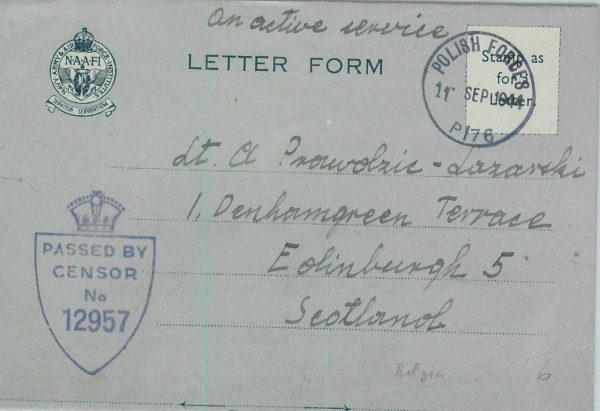 On active service
NAAFI
NAVY, ARMY & AIR FORCE INSTITUTES
SERVITOR SERVIENTIUM
LETTER FORM
Stamp as
for a
Letter.
POLISH FORCES
11 SEP 1944
P176
Lt. A Prawdzic-Lazarski
1, Denhamgreen Terrace
Edinburgh 5
Scotland
PASSED BY
CENSOR
No
12957
6